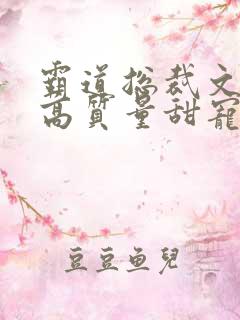 霸道总裁文
高质量甜宠
豆豆鱼儿